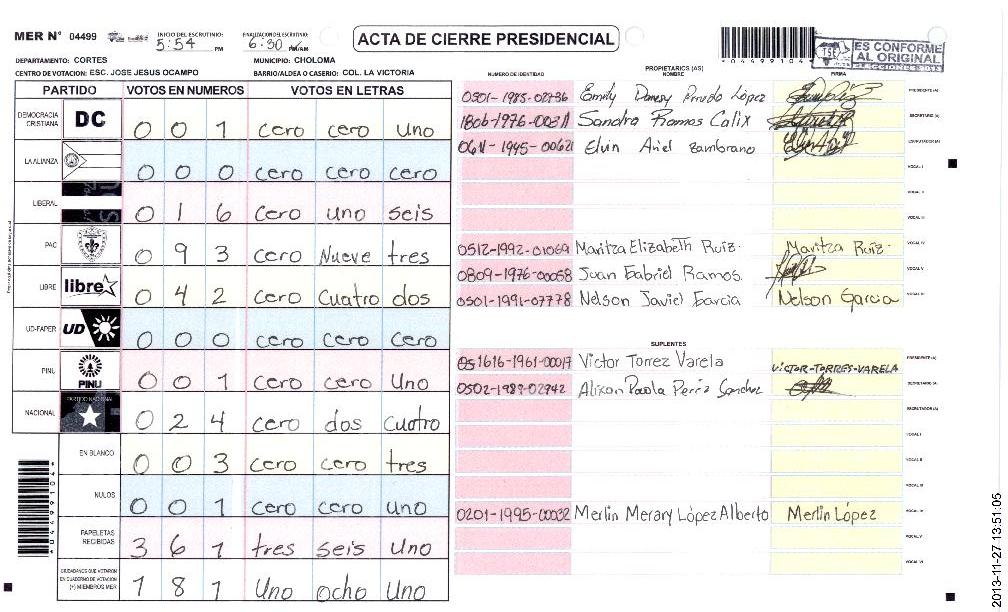 MER N° 04499
INICIO DEL ESCRUTINIO: 5:54 PM
FINALIZACION DEL ESCRUTINIO: 6:30 PM/AM
ACTA DE CIERRE PRESIDENCIAL
04499104
TSE ES CONFORME AL ORIGINAL ELECCIONES 2013
DEPARTAMENTO: CORTES
MUNICIPIO: CHOLOMA
CENTRO DE VOTACION: ESC. JOSE JESUS OCAMPO
BARRIO/ALDEA O CASERIO: COL. LA VICTORIA
PARTIDO VOTOS EN NUMEROS VOTOS EN LETRAS
DEMOCRACIA CRISTIANA DC 0 0 1 cero cero uno
LA ALIANZA 0 0 0 cero cero cero
LIBERAL 0 1 6 cero uno seis
PAC 0 9 3 cero Nueve tres
LIBRE libre 0 4 2 cero cuatro dos
UD-FAPER UD 0 0 0 cero cero cero
PINU PINU 0 0 1 cero cero Uno
NACIONAL PARTIDO NACIONAL 0 2 4 cero dos cuatro
EN BLANCO 0 0 3 cero cero tres
NULOS 0 0 1 cero cero uno
PAPELETAS RECIBIDAS 3 6 1 tres seis uno
CIUDADANOS QUE VOTARON EN CUADERNO DE VOTACION (+) MIEMBROS MER 1 8 1 Uno ocho Uno
04499104
PROPIETARIOS (AS)
NUMERO DE IDENTIDAD NOMBRE FIRMA
0501-1985-02736 Emily López PRESIDENTE (A)
Sandra Ramos Calix SECRETARIO (A)
Elvin Ariel Zambrano ESCRUTADOR (A)
VOCAL I
VOCAL II
VOCAL III
0512-1992-01069 Maritza Elizabeth Ruiz. Maritza Ruiz. VOCAL IV
0809-1976-00058 Juan Gabriel Ramos. VOCAL V
0501-1991-07778 Nelson Javiel Garcia Nelson Garcia VOCAL VI
SUPLENTES
1616-1961-00017 Victor Torrez Varela VICTOR-TORRES-VARELA PRESIDENTE (A)
0502-1989-02942 Paola SECRETARIO (A)
ESCRUTADOR (A)
VOCAL I
VOCAL II
VOCAL III
0201-1995-00032 Merlin Merary López Alberto Merlin López VOCAL IV
VOCAL V
VOCAL VI
2013-11-27 13:51:05